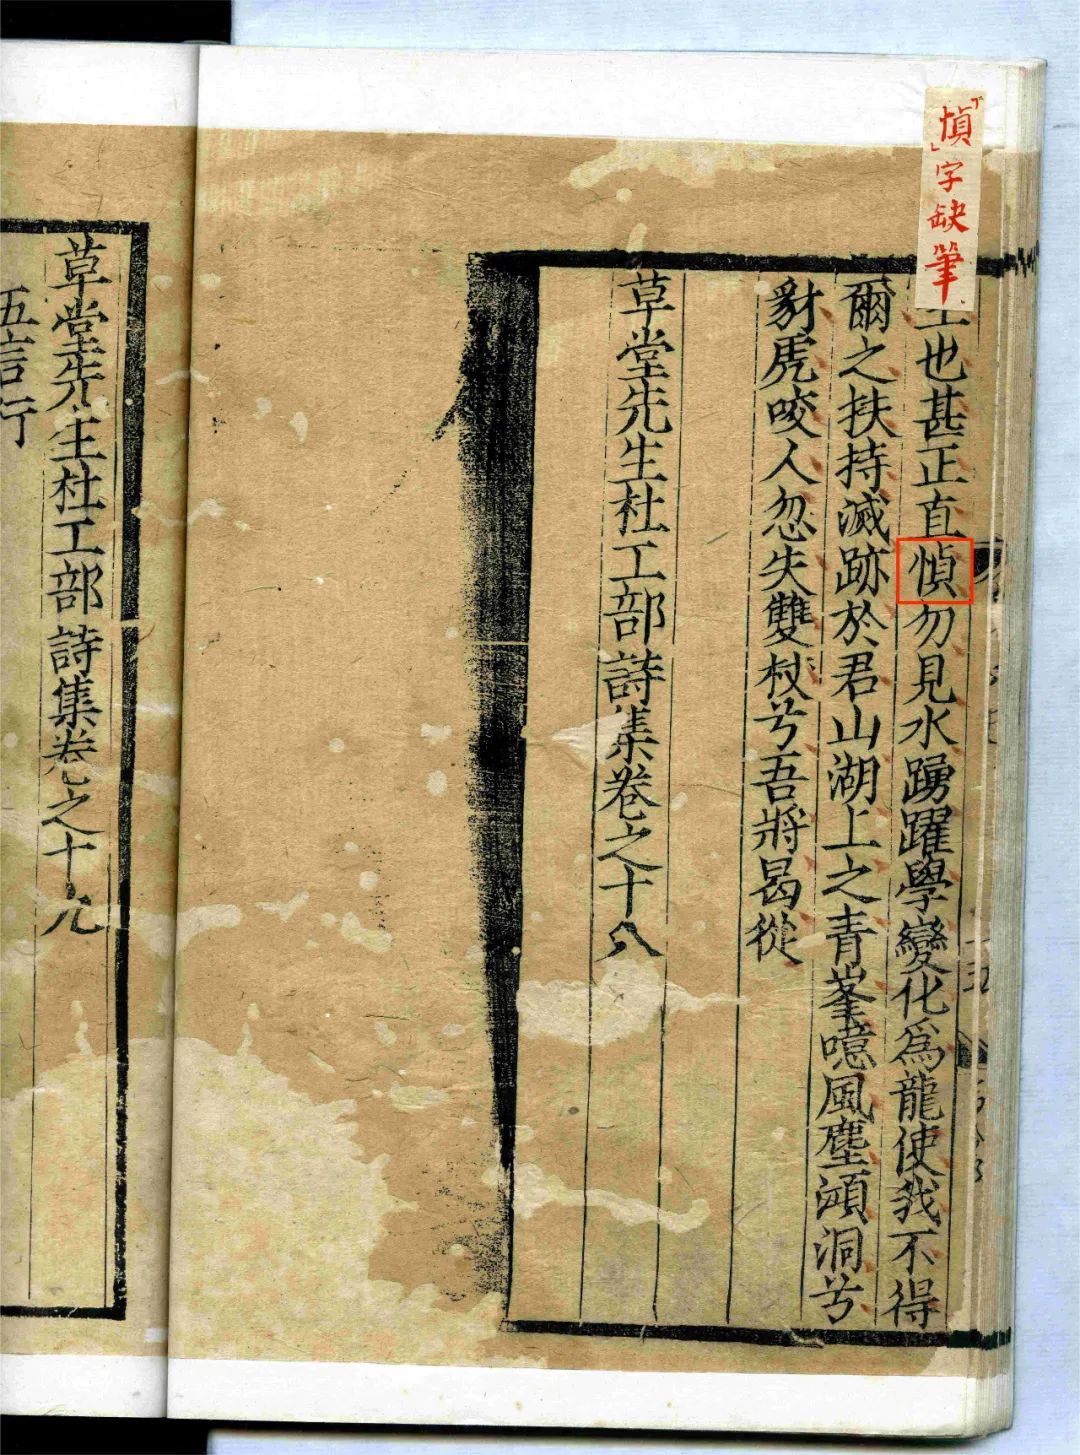 「慎」字缺筆
也甚正直慎勿見水踴躍學變化為龍使我不得
爾之扶持滅跡於君山湖上之青峯噫風塵澒洞兮
豺虎咬人忽失雙杖兮吾將曷從
草堂先生杜工部詩集卷之十八
草堂先生杜工部詩集卷之十九
五言行